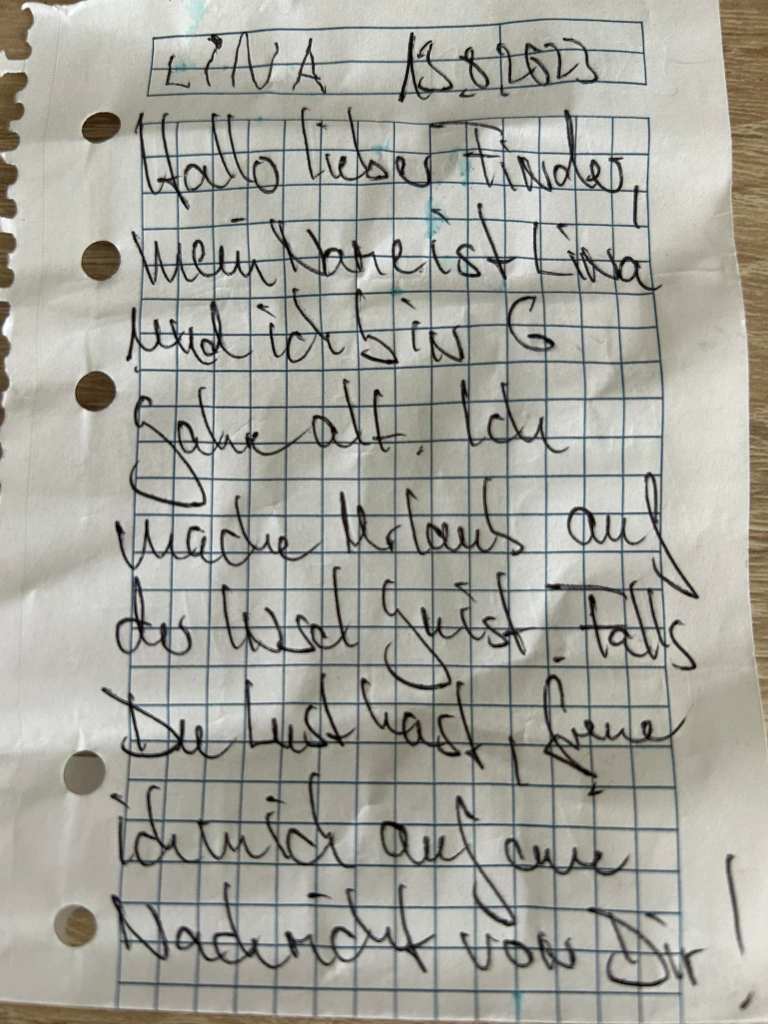 LINA 13.8.2023
Hallo lieber Finder,
mein Name ist Lina
und ich bin 6
Jahre alt. Ich
mache Urlaub auf
der Insel Juist. Falls
Du Lust hast, freue
ich mich auf eine
Nachricht von Dir!